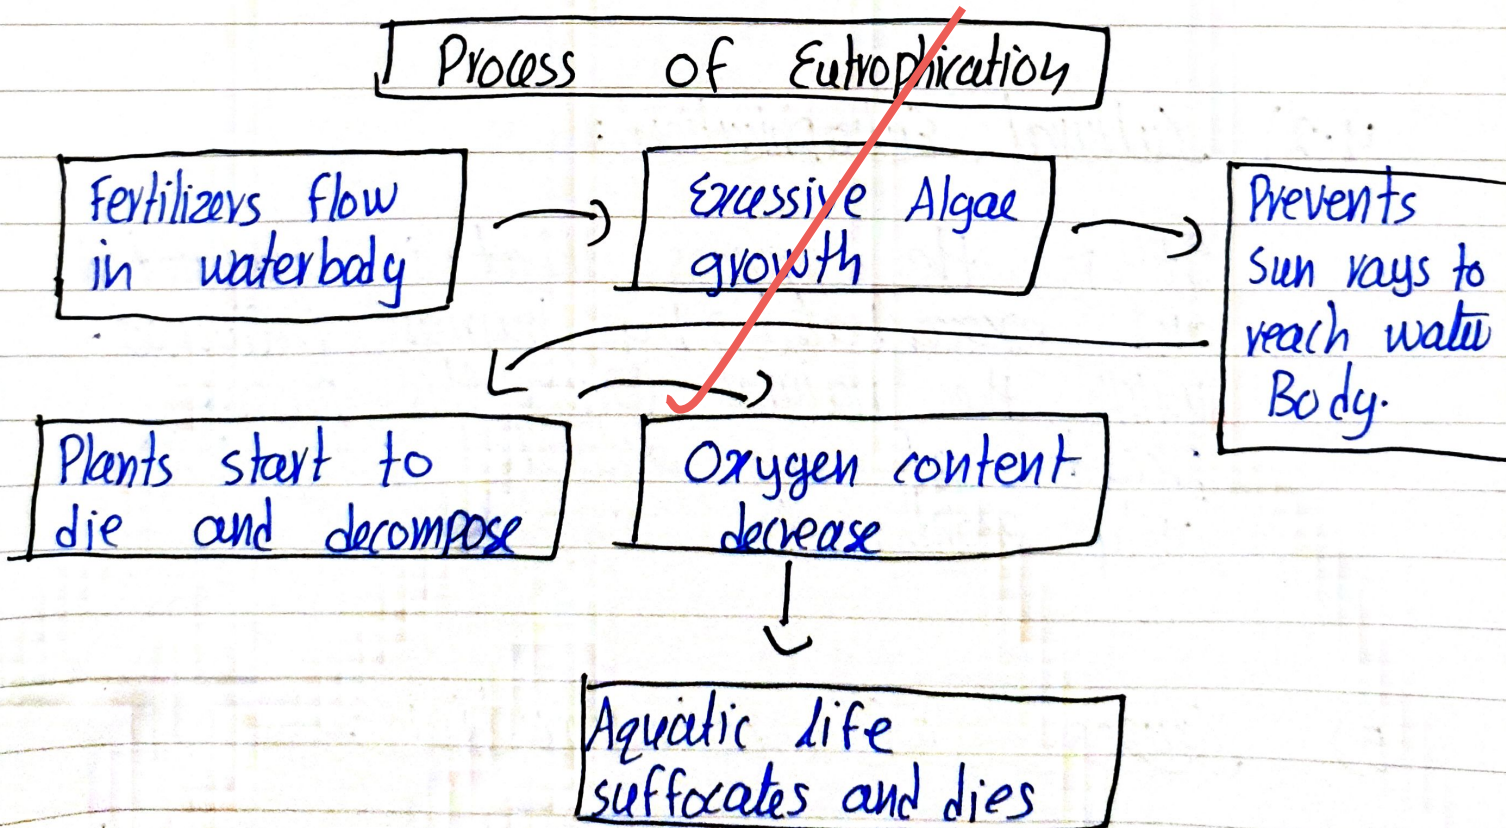 Process of Eutrophication
Fertilizers flow
in waterbody
Excessive Algae
growth
Prevents
Sun rays to
reach water
Body.
Plants start to
die and decompose
Oxygen content
decrease
Aquatic life
suffocates and dies